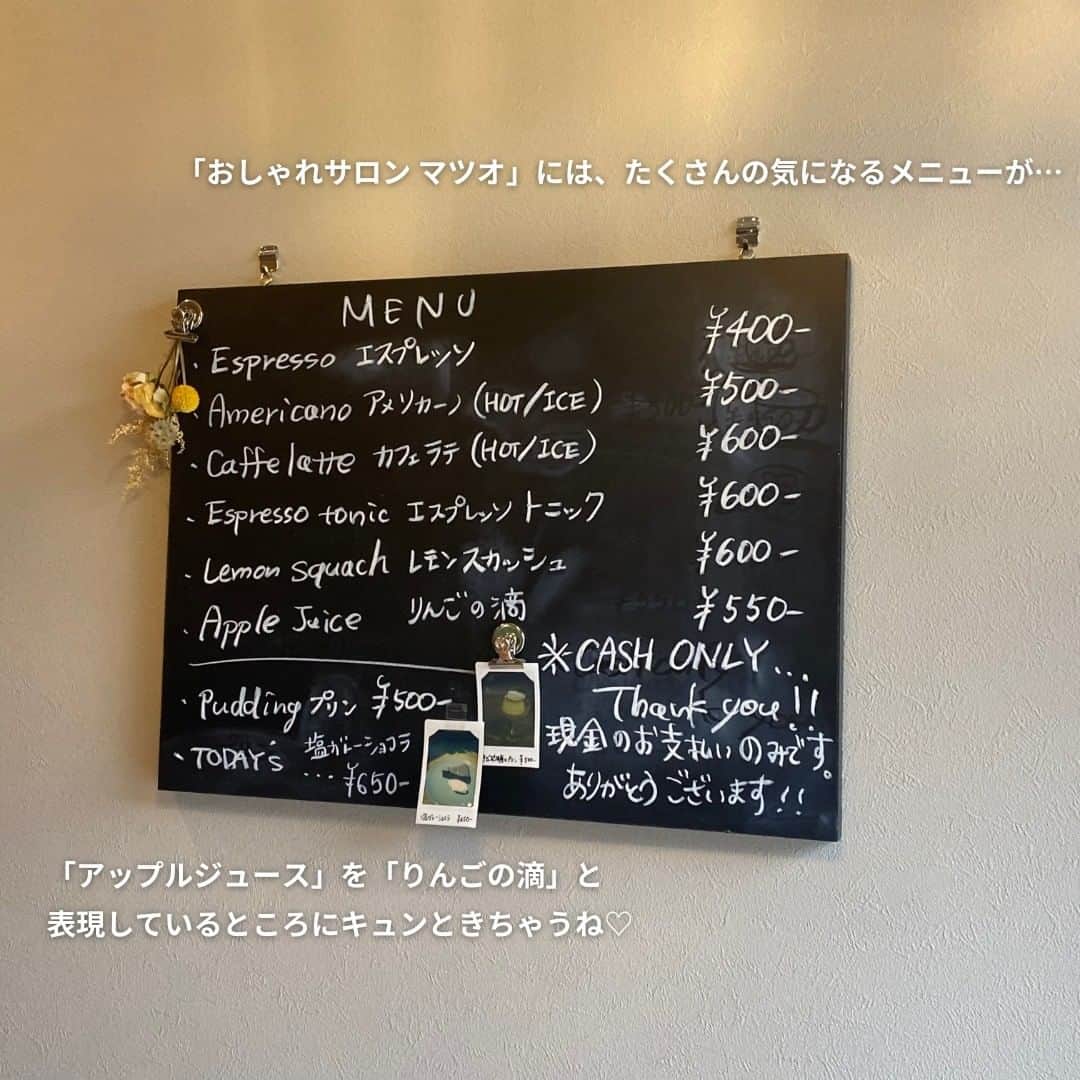 「おしゃれサロン マツオ」には、たくさんの気になるメニューが…
MENU
・Espresso エスプレッソ ¥400-
・Americano アメリカーノ (HOT/ICE) ¥500-
・Caffe latte カフェラテ (HOT/ICE) ¥600-
・Espresso tonic エスプレッソ トニック ¥600-
・Lemon squach レモンスカッシュ ¥600-
・Apple Juice りんごの滴 ¥550-
※CASH ONLY...
Thank you!!
現金のお支払いのみです。
ありがとうございます!!
・Pudding プリン ¥500-
・TODAY's 塩ガレーショコラ
... ¥650-
「アップルジュース」を「りんごの滴」と
表現しているところにキュンときちゃうね♡